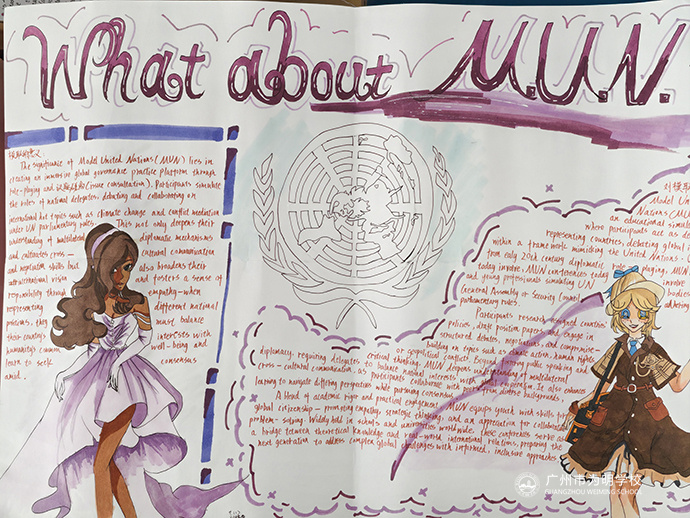 What about M.U.N.
The significance of Model United Nations (MUN) lies in
creating an immersive global governance practice platform through
role-playing and (issue consultation). Participants simulate
the roles of national delegates, debating and collaborating on
international hot topics such as climate change and conflict mediation
under UN parliamentary rules. This not only deepens their
understanding of multilateral diplomatic mechanisms
and cultivates cross- cultural communication
and negotiation skills but also broadens their
international vision and fosters a sense of
responsibility through empathy—when
representing different national
positions, they must balance
their country's interests with
humanity's common well-being and
learn to seek consensus
amid
Model Un
Nations (MU
an educational simula
where participants act as de
representing countries, debating global i
within a framework mimicking the United Nations.
from early 20th century diplomatic role playing, MUN
today involve. MUN conferences today involve
and young professionals simulating UN bodies
(General Assembly or Security Council) adhering
parliamentary rules.
Participants research assigned countries'
policies, draft position papers, and engage in
structured debates, negotiations, and compromise
building on topics such as climate action, human rights
or geopolitical conflicts. Beyond furthering public speaking and
diplomacy, requiring delegates to critical thinking, MUN deepens understanding of multilateral
cross-cultural communication, as participants balance national interests with global cooperation. It also enhances
learning to navigate differing perspectives while pursuing consensus. collaborate with peers from diverse backgrounds,
A blend of academic rigor and practical engagement, MUN equips youth with skills for
global citizenship—promoting empathy, strategic thinking, and an appreciation for collaborative
problem-solving. Widely held in schools and universities worldwide, these conferences serve as
a bridge between theoretical knowledge and real-world international relations, preparing the
next generation to address complex global challenges with informed, inclusive approaches
广州市为明学校
GUANGZHOU WEIMING SCHOOL